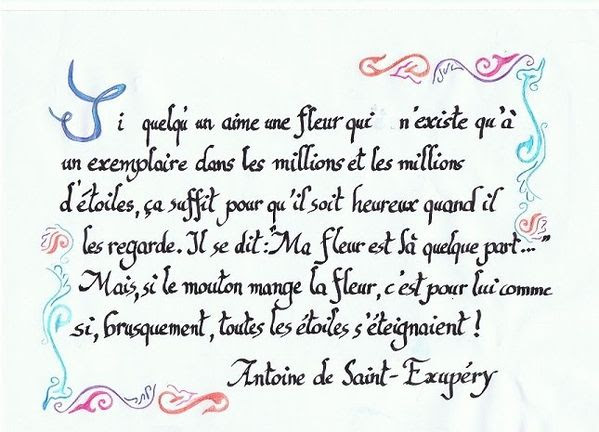 Si quelqu'un aime une fleur qui n'existe qu'à
un exemplaire dans les millions et les millions
d'étoiles, ça suffit pour qu'il soit heureux quand il
les regarde. Il se dit: "Ma fleur est là quelque part..."
Mais, si le mouton mange la fleur, c'est pour lui comme
si, brusquement, toutes les étoiles s'éteignaient !
Antoine de Saint-Exupéry